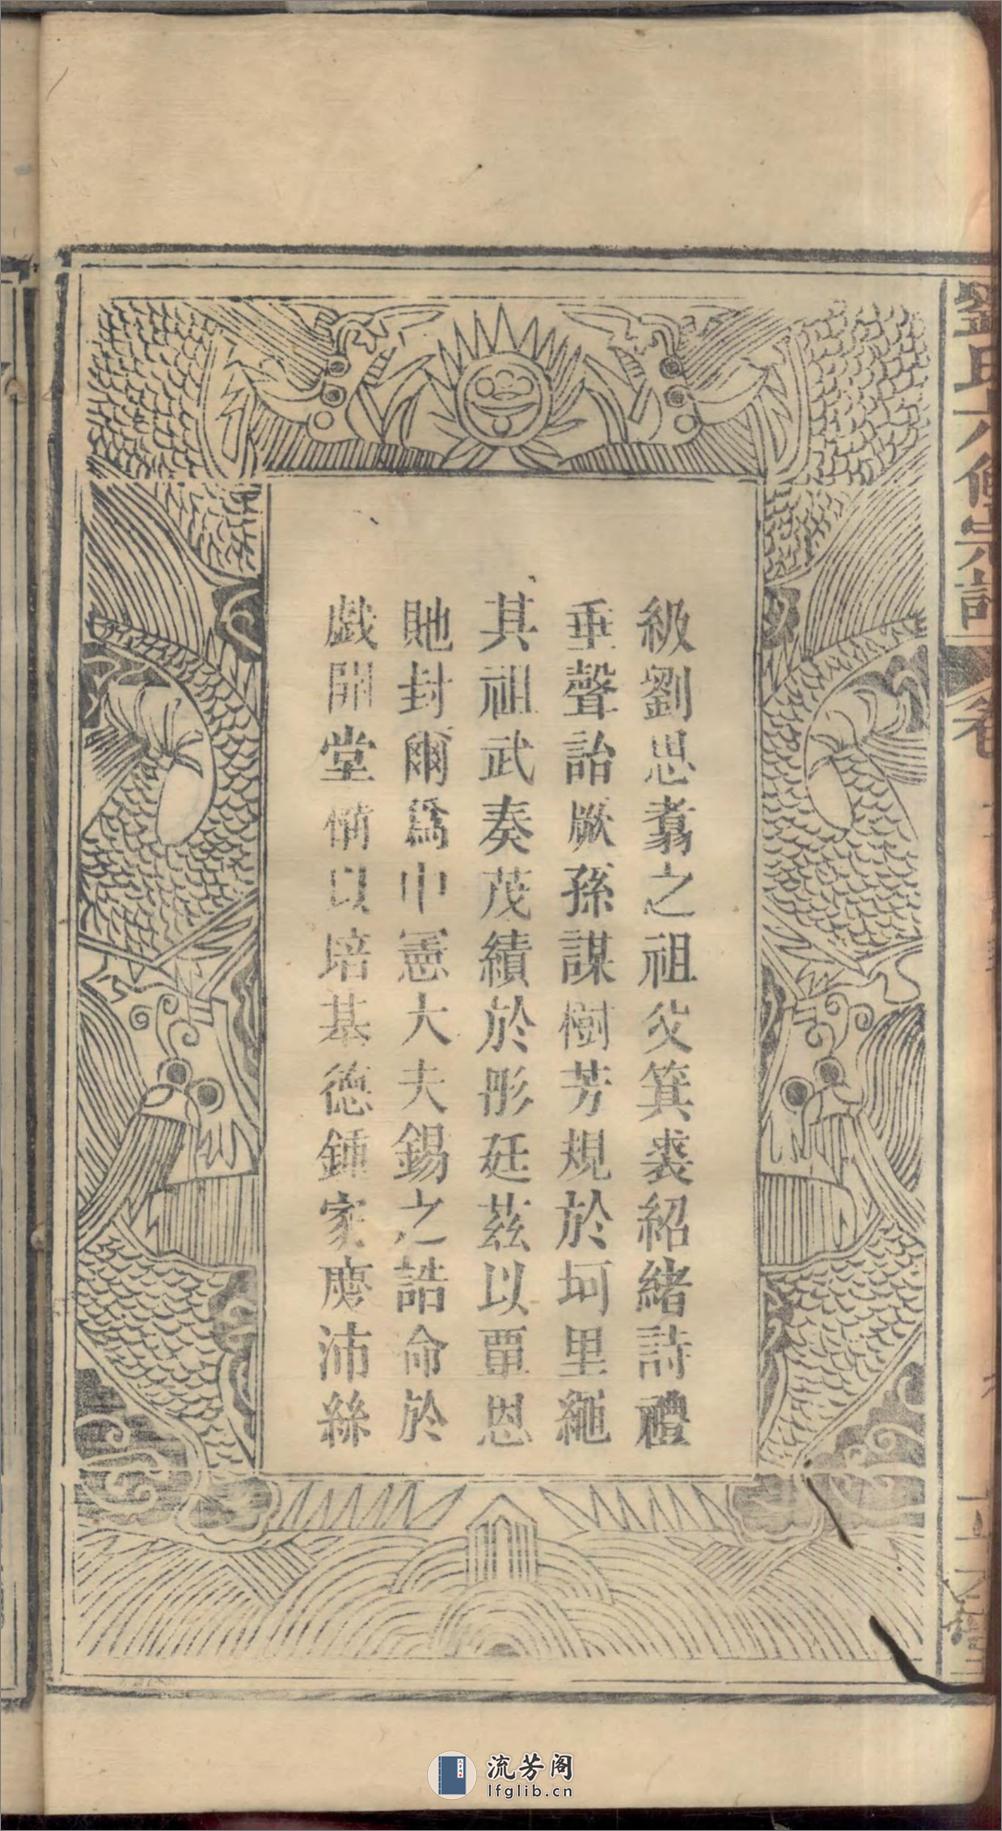 級劉思翥之祖父箕裘紹緒詩禮
垂聲詒厥孫謀樹芳規於坷里繩
其祖武奏茂績於彤廷茲以覃恩
貤封爾為中憲大夫錫之誥命於
戲開堂構以培基德鍾家慶沛絲
劉氏六修宗譜
卷
流芳阁
lfglib.cn